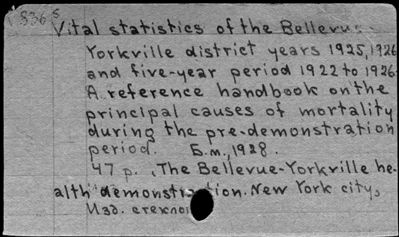 836 5
Vital statistics of the Bellevue
Yorkville district years 1925, 1926
and five-year period 1922 to 1926.
A reference handbook on the
principal causes of mortality
during the pre-demonstration
period. Б.м., 1928.
47 p. The Bellevue-Yorkville he-
alth demonstration. New York city,
Изд.